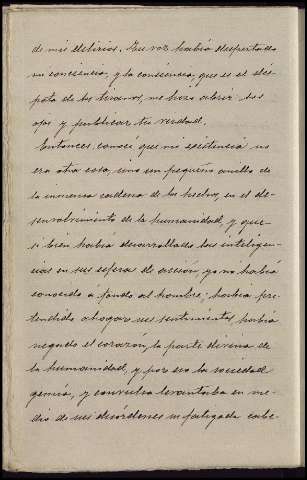 de mis delirios. Tu voz había despertado
mi conciencia, y la conciencia, que es el dés-
pota de los tiranos, me hizo abrir los
ojos y publicar tu verdad.
Entonces conocí que mi existencia no
era otra cosa, sino un pequeño anillo de
la inmensa cadena de los hechos, en el de-
senvolvimiento de la humanidad, y que
si bien había desarrollado las inteligen-
cias en su esfera de acción, yo no había
conocido a fondo al hombre; había pre-
tendido ahogar sus sentimientos, había
negado el corazon, la parte divina de
la humanidad, y por eso la sociedad
gemía, y convulsa levantaba en me-
dio de sus desórdenes su fatigada cabe-